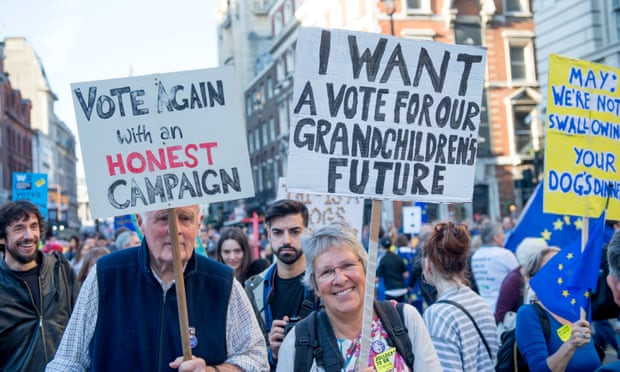 VOTE AGAIN
with an
HONEST
CAMPAIGN
I WANT
A VOTE FOR OUR
GRANDCHILDREN'S
FUTURE
MAY:
WE'RE NOT
SWALLOWING
YOUR
DOG'S DINNER